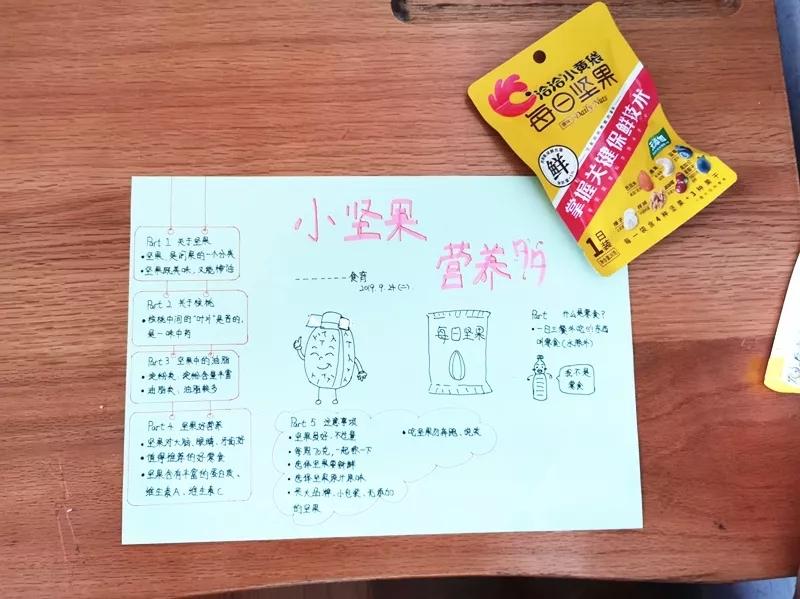 小坚果
营养多
-------食育
2019.9.24(二)
Part 1 关于坚果
• 坚果 是闭果的一个分类
• 坚果既美味,又能榨油
Part 2 关于核桃
• 核桃中间的"叶片"是苦的,
是一味中药
Part 3 坚果中的油脂
• 淀粉类:淀粉含量丰富
• 油脂类:油脂较多
Part 4 坚果好营养
• 坚果对大脑、眼睛、牙齿好
• 值得推荐的好零食
• 坚果含有丰富的蛋白质、
维生素A、维生素C
每日坚果
Part 什么是零食?
• 一日三餐外吃的东西
叫零食(水除外)
我不是
零食
Part 5 注意事项
• 坚果虽好,不过量
• 每周70克,一起数一下
• 选择坚果要新鲜
• 选择坚果原汁原味
• 买大品牌、小包装、无添加
的坚果
• 吃坚果勿奔跑、说笑
洽洽小黄袋
每日坚果
Daily Nuts
鲜
掌握关键保鲜技术
1日装
每一袋含4种坚果+3种果干